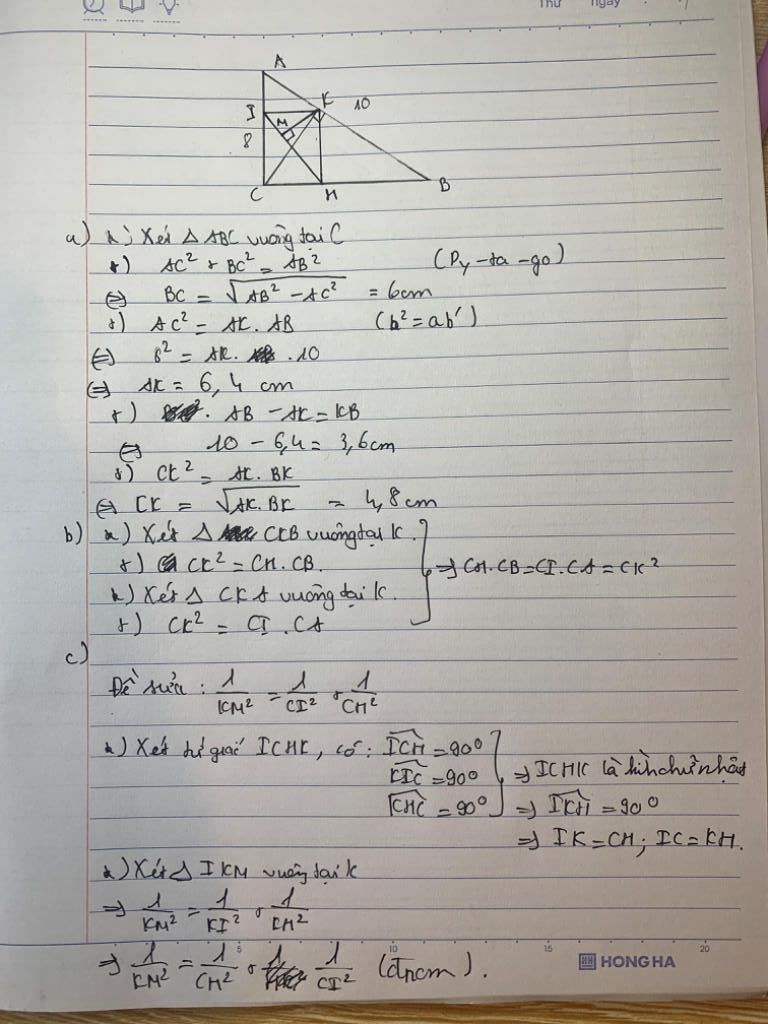 Thứ ngày
A
I
K
10
M
8
C
H
B
a) *) Xét Δ ABC vuông tại C
+) AC² + BC² = AB² (Py-ta-go)
⇔ BC = √AB² - AC² = 6cm
+) AC² = AK. AB (b² = ab')
⇔ 8² = AK. .10
⇔ AK = 6,4 cm
+) AB - AK = KB
⇔ 10 - 6,4 = 3,6cm
+) CK² = AK. BK
⇔ CK = √AK. BK = 4,8cm
b) *) Xét Δ CKB vuông tại K.
+) CK² = CH. CB.
⇒ CH. CB = CI. CA = CK²
*) Xét Δ CKA vuông tại K.
+) CK² = CI. CA
c)
Đề sửa: 1/KM² = 1/CI² + 1/CH²
*) Xét tứ giác ICHK, có: ICH = 90°
KIC = 90° ⇒ ICHK là hình chữ nhật
KHC = 90° ⇒ IKH = 90°
⇒ IK = CH; IC = KH.
*) Xét Δ IKM vuông tại K
⇒ 1/KM² = 1/KI² + 1/KH²
⇒ 1/KM² = 1/CH² + 1/CI² (đpcm).
5 10 15 20
HH HONG HA